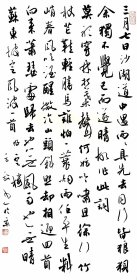 三月七日沙湖道中遇雨雨具先去同行皆狼狽
余獨不覺已而遂晴故作此詞
莫聽穿林打葉聲何妨吟嘯且徐行竹
杖芒鞋輕勝馬誰怕一蓑煙雨任平生料
峭春風吹酒醒微冷山頭斜照卻相迎回首
向來蕭瑟處歸去也無風雨也無晴
蘇東坡定風波一首